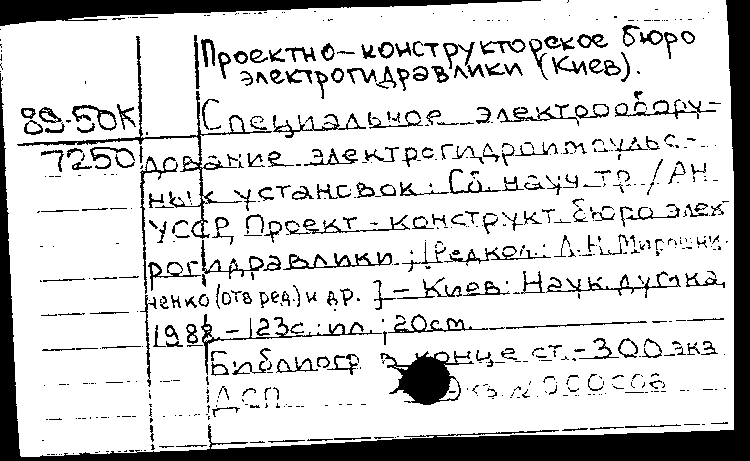 Проектно-конструкторское бюро
электрогидравлики (Киев).
89-50К Специальное электрообору-
7250 дование электрогидроимпульс-
ных установок: Сб. науч. тр / АН
УССР, Проект-конструкт. бюро элек
рогидравлики; [Редкол.: Л.Н. Мирошни-
ченко (отв ред.) и др.] - Киев: Наук. думка,
1988 - 123с.: ил.; 20см.
Библиогр в конце ст. - 300 экз
ДСП Экз № 000006